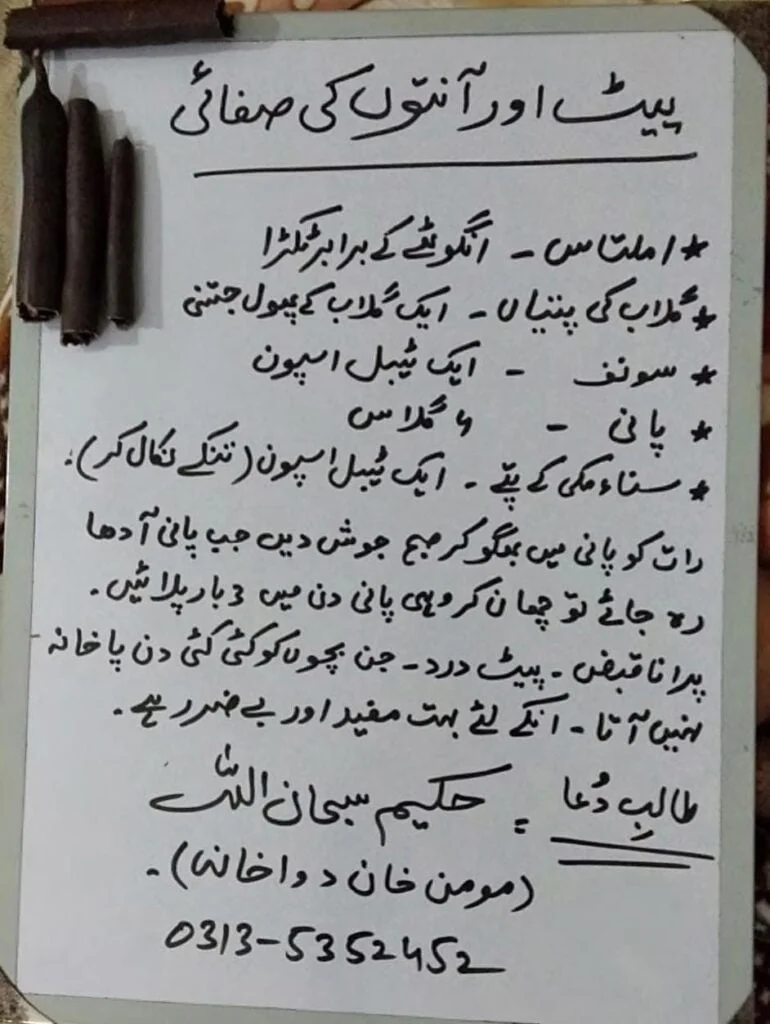 پیٹ اور آنتوں کی صفائی
* املتاس - انگوٹھے کے برابر ٹکڑا
* گلاب کی پتیاں - ایک گلاب کے پھول جتنی
* سونف - ایک ٹیبل اسپون
* پانی - 4 گلاس
* سناء مکی کے پتے - ایک ٹیبل اسپون (تنکے نکال کر)۔
رات کو پانی میں بھگو کر صبح جوش دیں جب پانی آدھا
رہ جائے تو چھان کر وہی پانی دن میں 3 بار پلائیں۔
پرانا قبض - پیٹ درد - جن بچوں کو کئی کئی دن پاخانہ
نہیں آتا - انکے لئے بہت مفید اور بے ضرر ہے۔
طالبِ دُعا = حکیم سبحان اللہ
(مومن خان دواخانہ)۔
0313-5352452